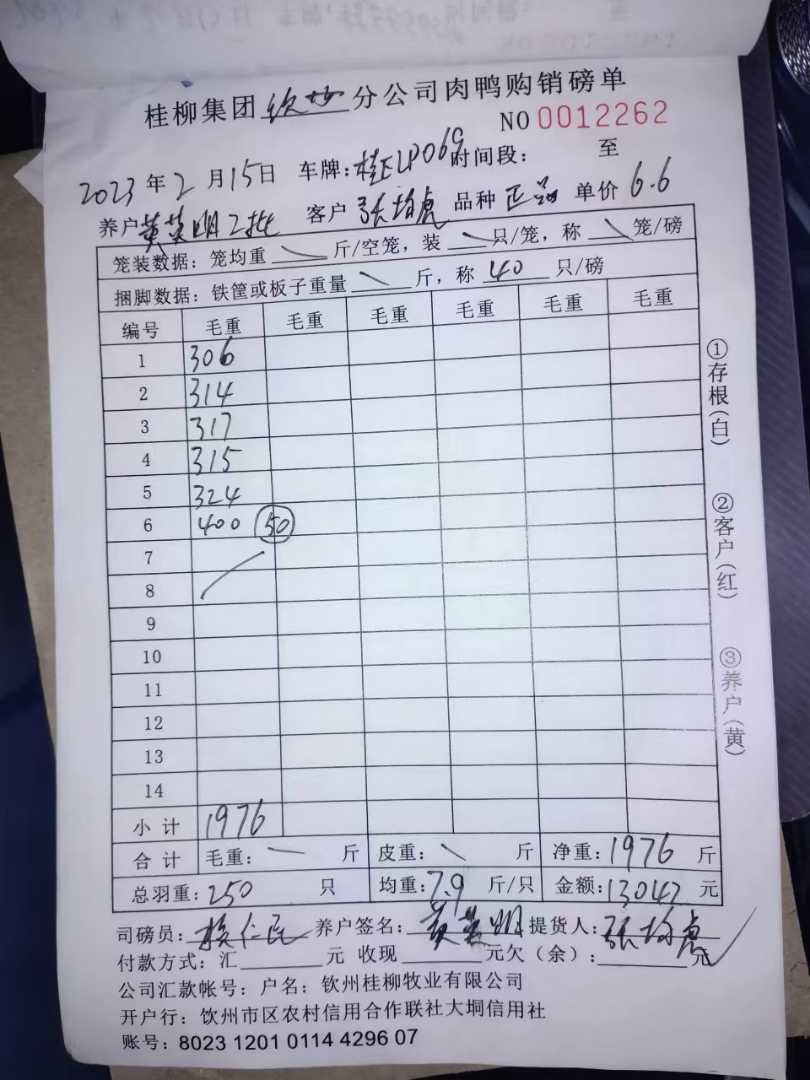 桂柳集团 钦州 分公司肉鸭购销磅单
NO 0012262
2023 年 2 月 15 日 车牌: 时间段: 至
养户 黄英明2批 客户 张均虎 品种 正品 单价 6.6
笼装数据: 笼均重 \ 斤/空笼, 装 \ 只/笼, 称 \ 笼/磅
捆脚数据: 铁筐或板子重量 \ 斤, 称 40 只/磅
编号 毛重 毛重 毛重 毛重 毛重 毛重
1 306
2 314
3 317
4 315
5 324
6 400 50
7
8
9
10
11
12
13
14
小计 1976
合计 毛重: — 斤 皮重: \ 斤 净重: 1976 斤
总羽重: 250 只 均重: 7.9 斤/只 金额: 13042 元
司磅员: 养户签名: 黄英明 提货人: 张均虎
付款方式: 汇 元 收现 元欠(余): 元
公司汇款帐号: 户名: 钦州桂柳牧业有限公司
开户行: 钦州市区农村信用合作联社大垌信用社
账号: 8023 1201 0114 4296 07
①存根(白)
②客户(红)
③养户(黄)